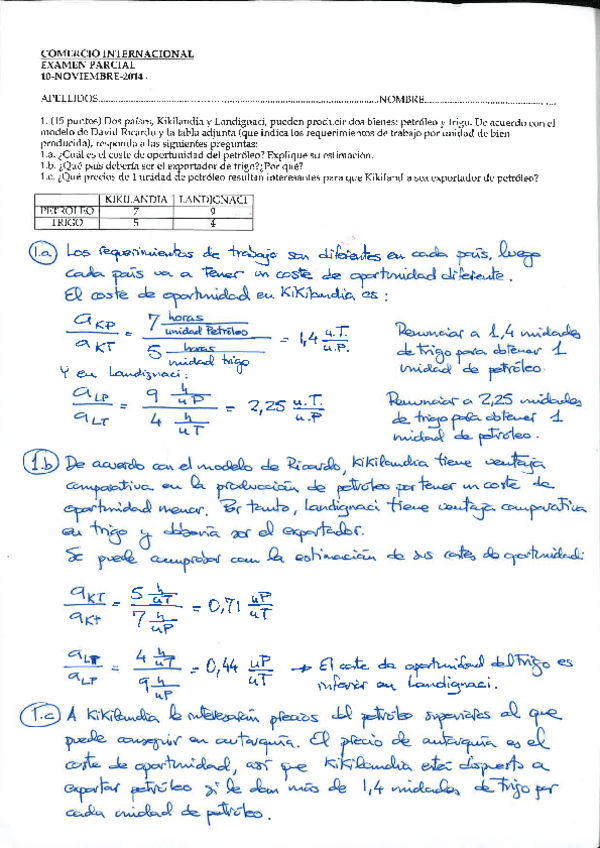 COMERCIO INTERNACIONAL
EXAMEN PARCIAL
10-NOVIEMBRE-2014.
APELLIDOS..........NOMBRE..........
1. (15 puntos) Dos países, Kikilandia y Landignaci, pueden producir dos bienes: petróleo y trigo. De acuerdo con el
modelo de David Ricardo y la tabla adjunta (que indica los requerimientos de trabajo por unidad de bien
producida), responda a las siguientes preguntas:
1.a. ¿Cuál es el coste de oportunidad del petróleo? Explique su estimación.
1.b. ¿Qué país debería ser el exportador de trigo? ¿Por qué?
1.c. ¿Qué precios de 1 unidad de petróleo resultan interesantes para que Kikiland a sea exportador de petróleo?
KIKILANDIA LANDIGNACI
PETRÓLEO 7 9
TRIGO 5 4
1.a) Los requerimientos de trabajo son diferentes en cada país, luego
cada país va a tener un coste de oportunidad diferente.
El coste de oportunidad en Kikilandia es:
aKP / aKT = 7 horas/unidad Petróleo / 5 horas/unidad trigo = 1,4 u.T./u.P.
Renunciar a 1,4 unidades
de trigo para obtener 1
unidad de petróleo.
Y en Landignaci:
aLP / aLT = 9 h/uP / 4 h/uT = 2,25 u.T./u.P
Renunciar a 2,25 unidades
de trigo para obtener 1
unidad de petróleo.
1.b) De acuerdo con el modelo de Ricardo, Kikilandia tiene ventaja
comparativa en la producción de petróleo por tener un coste de
oportunidad menor. Por tanto, Landignaci tiene ventaja comparativa
en trigo y debería ser el exportador.
Se puede comprobar con la estimación de sus costes de oportunidad:
aKT / aKP = 5 h/uT / 7 h/uP = 0,71 uP/uT
aLT / aLP = 4 h/uT / 9 h/uP = 0,44 uP/uT → El coste de oportunidad del Trigo es
inferior en Landignaci.
1.c) A Kikilandia le interesarán precios del petróleo superiores al que
puede conseguir en autarquía. El precio de autarquía es el
coste de oportunidad, así que Kikilandia está dispuesta a
exportar petróleo si le dan más de 1,4 unidades de trigo por
cada unidad de petróleo.